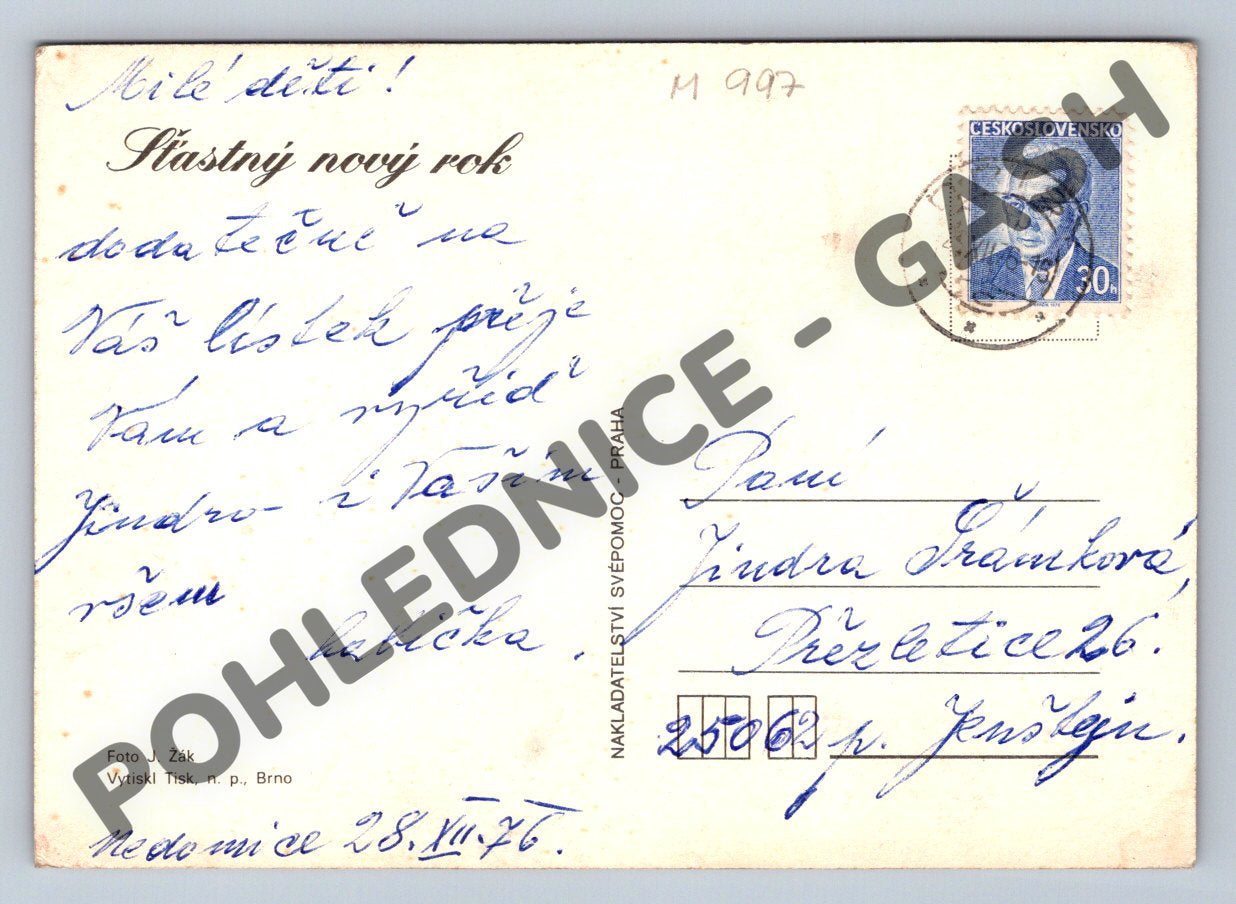 Milé děti!
Šťastný nový rok
dodatečně na
Váš lístek přeje
Vám a vyřiď
Jindro- i Vašim
všem
babička.
Foto J. Žák
Vytiskl Tisk, n. p., Brno
Nedomice 28. XII. 76.
NAKLADATELSTVÍ SVÉPOMOC - PRAHA
M 997
ČESKOSLOVENSKO
30h
Paní
Jindra Šrámková,
Přezletice 26.
25062 p. Jenštejn.
POHLEDNICE - GASH